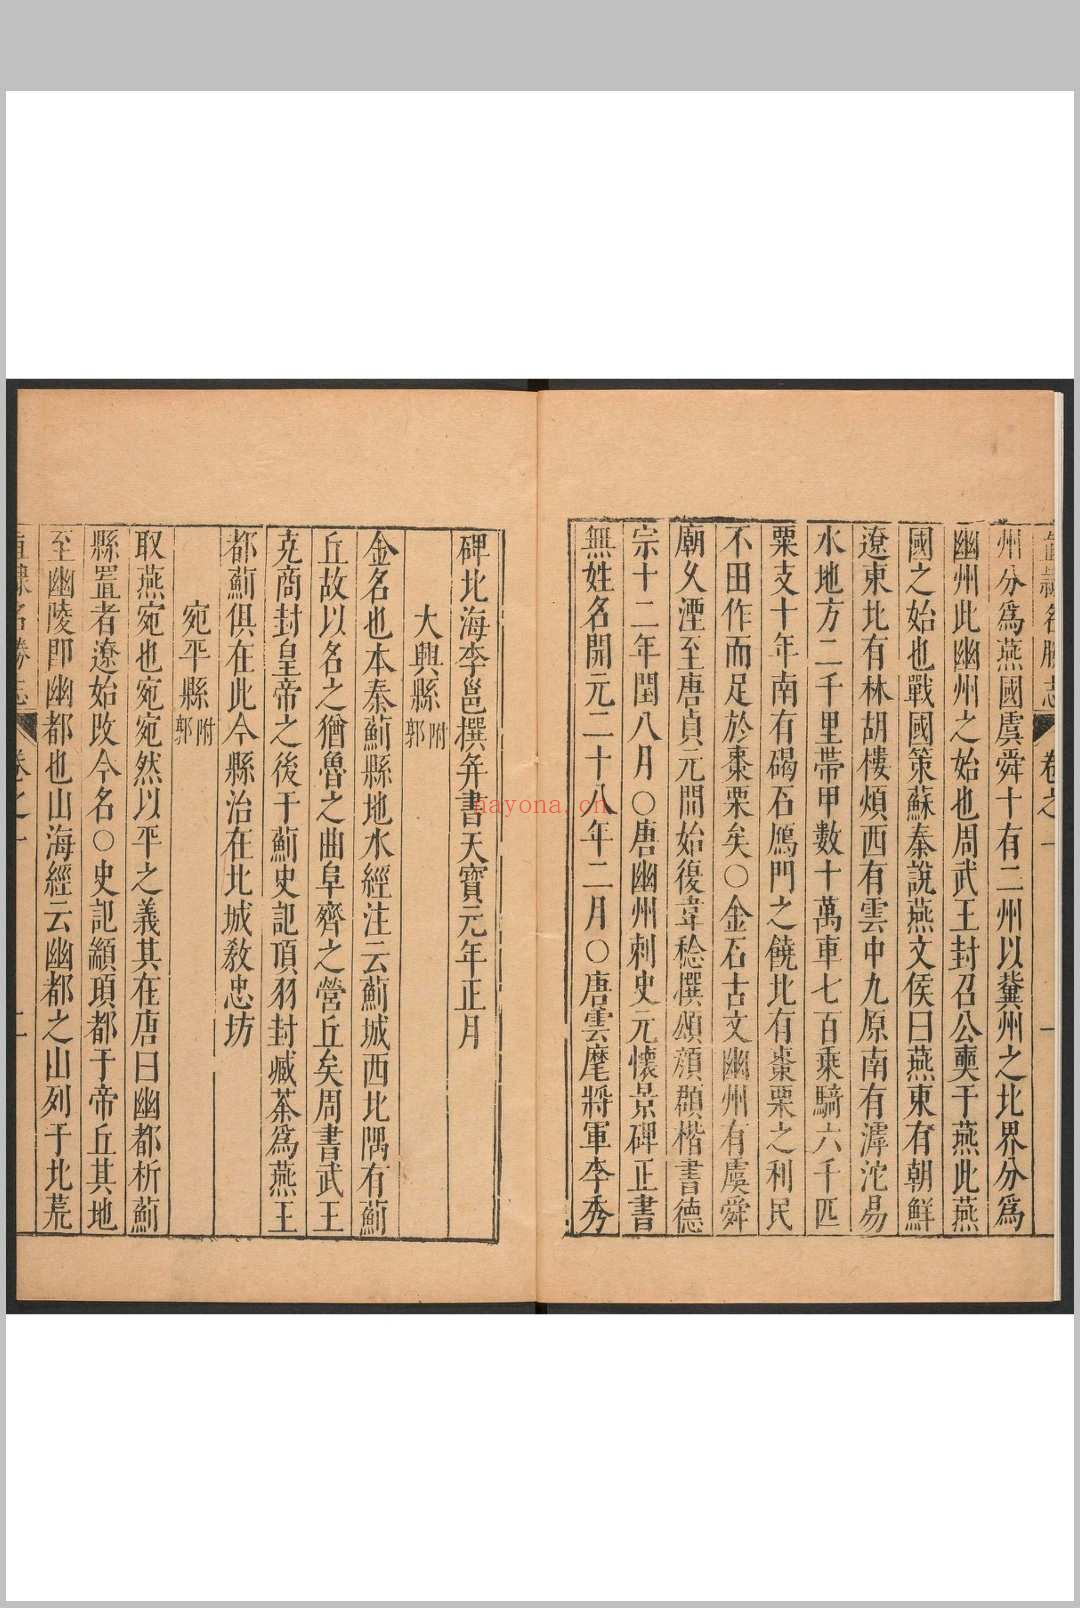 直隸名勝志 卷之一 一
州分爲燕國虞舜十有二州以冀州之北界分爲
幽州此幽州之始也周武王封召公奭于燕此燕
國之始也戰國策蘇秦說燕文侯曰燕東有朝鮮
遼東北有林胡樓煩西有雲中九原南有滹沱易
水地方二千里帶甲數十萬車七百乘騎六千匹
粟支十年南有碣石鴈門之饒北有棗栗之利民
不田作而足於棗栗矣○金石古文幽州有虞舜
廟久湮至唐貞元間始復韋稔撰頌顏顥楷書德
宗十二年閏八月○唐幽州刺史元懷景碑正書
無姓名開元二十八年二月○唐雲麾將軍李秀
碑北海李邕撰并書天寶元年正月
大興縣附郭
金名也本秦薊縣地水經注云薊城西北隅有薊
丘故以名之猶魯之曲阜齊之營丘矣周書武王
克商封皇帝之後于薊史記項羽封臧荼爲燕王
都薊俱在此今縣治在北城敎忠坊
宛平縣附郭
取燕宛也宛宛然以平之義其在唐曰幽都析薊
縣置者遼始改今名○史記顓頊都于帝丘其地
至幽陵卽幽都也山海經云幽都之山列于北荒
直隸名勝志 卷之一 二
nayona.cn